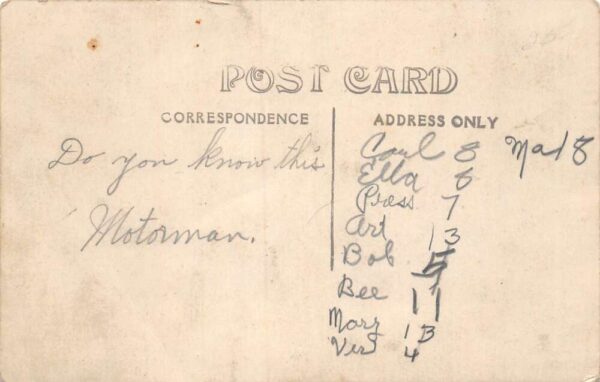 POST CARD
CORRESPONDENCE
ADDRESS ONLY
Do you know this
Motorman.
Carl 8 Mad 8
Ella 6
Press 7
Art 13
Bob 5
Bee 11
Mary 13
Ver 4